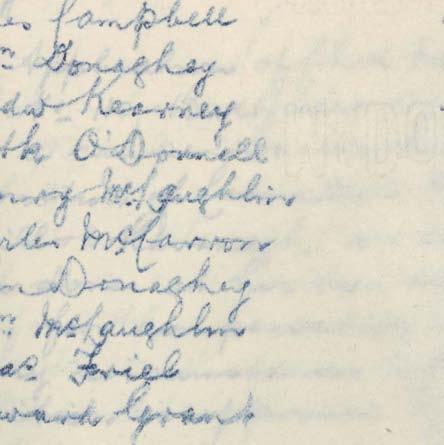 les Campbell
m Donaghey
dw Kearney
tk O'Donnell
nry McLaughlin
arles McCarron
n Donaghey
m McLaughlin
as Friel
ward Grant